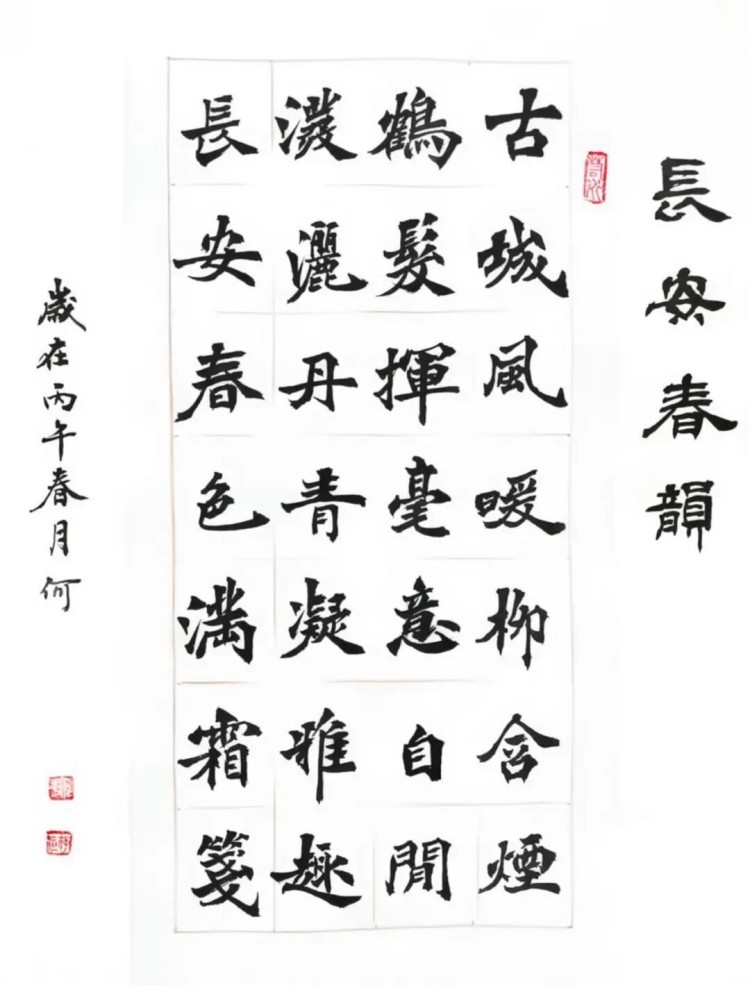 長安春韻
古城風暖柳含煙
鶴髮揮毫意自閒
潑灑丹青凝雅趣
長安春色滿霜箋
歲在丙午春月何